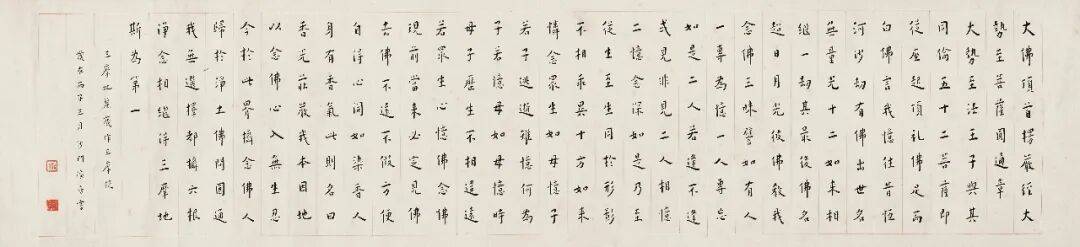 大佛頂首楞嚴經大
勢至菩薩圓通章
大勢至法王子與其
同倫五十二菩薩即
從座起頂礼佛足而
白佛言我憶往昔恆
河沙劫有佛出世名
無量光十二如來相
繼一劫其最後佛名
超日月光彼佛教我
念佛三昧譬如有人
一專為憶一人專忘
如是二人若逢不逢
或見非見二人相憶
二憶念深如是乃至
從生至生同於形影
不相乖異十方如來
憐念眾生如母憶子
若子逃逝雖憶何為
子若憶母如母憶時
母子歷生不相違遠
若眾生心憶佛念佛
現前當來必定見佛
去佛不遠不假方便
自得心開如染香人
身有香氣此則名曰
香光莊嚴我本因地
以念佛心入無生忍
今於此界攝念佛人
歸於淨土佛問圓通
我無選擇都攝六根
淨念相繼得三摩地
斯為第一
三摩地或作三摩提
歲在丙子三月沙門演音書